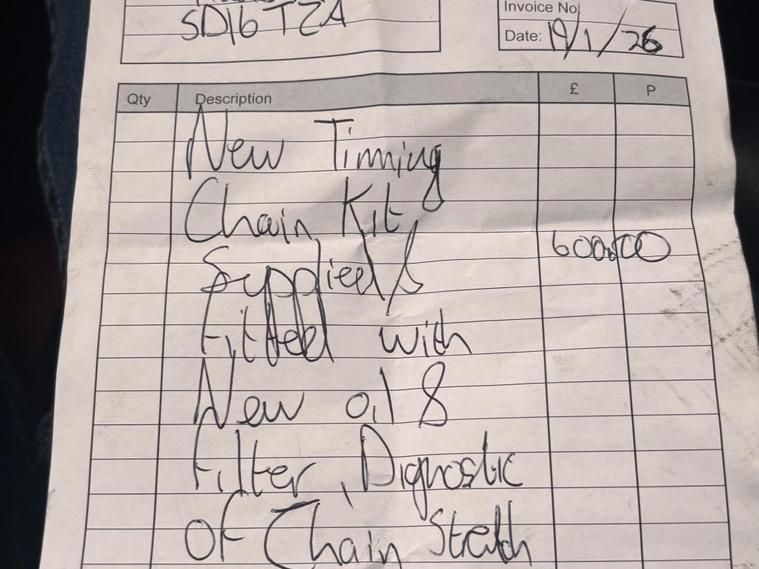 SD16 TZA
Invoice No:
Date: 19/1/26
Qty Description £ P
New Timming
Chain Kit
600.00
Supplied &
Fitted with
New oil &
Filter, Dignostic
of Chain Stretch